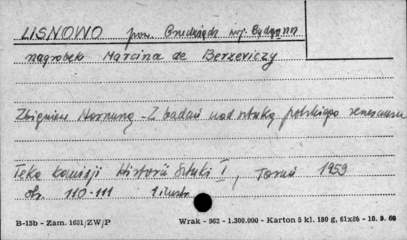 LISNOWO pow. Grudziądz woj. Bydgoszcz
nagrobek Marcina de Berzeviczy
Zbigniew Hornung - Z badań nad sztuką polskiego renesansu
Teka Komisji Historii Sztuki I, Toruń 1959
str. 110-111 1 ilustr.
B-15b - Zam. 1631/ZW/P Wrak - 962 - 1.300.000 - Karton 5 kl. 180 g, 61x86 - 10. 9. 60